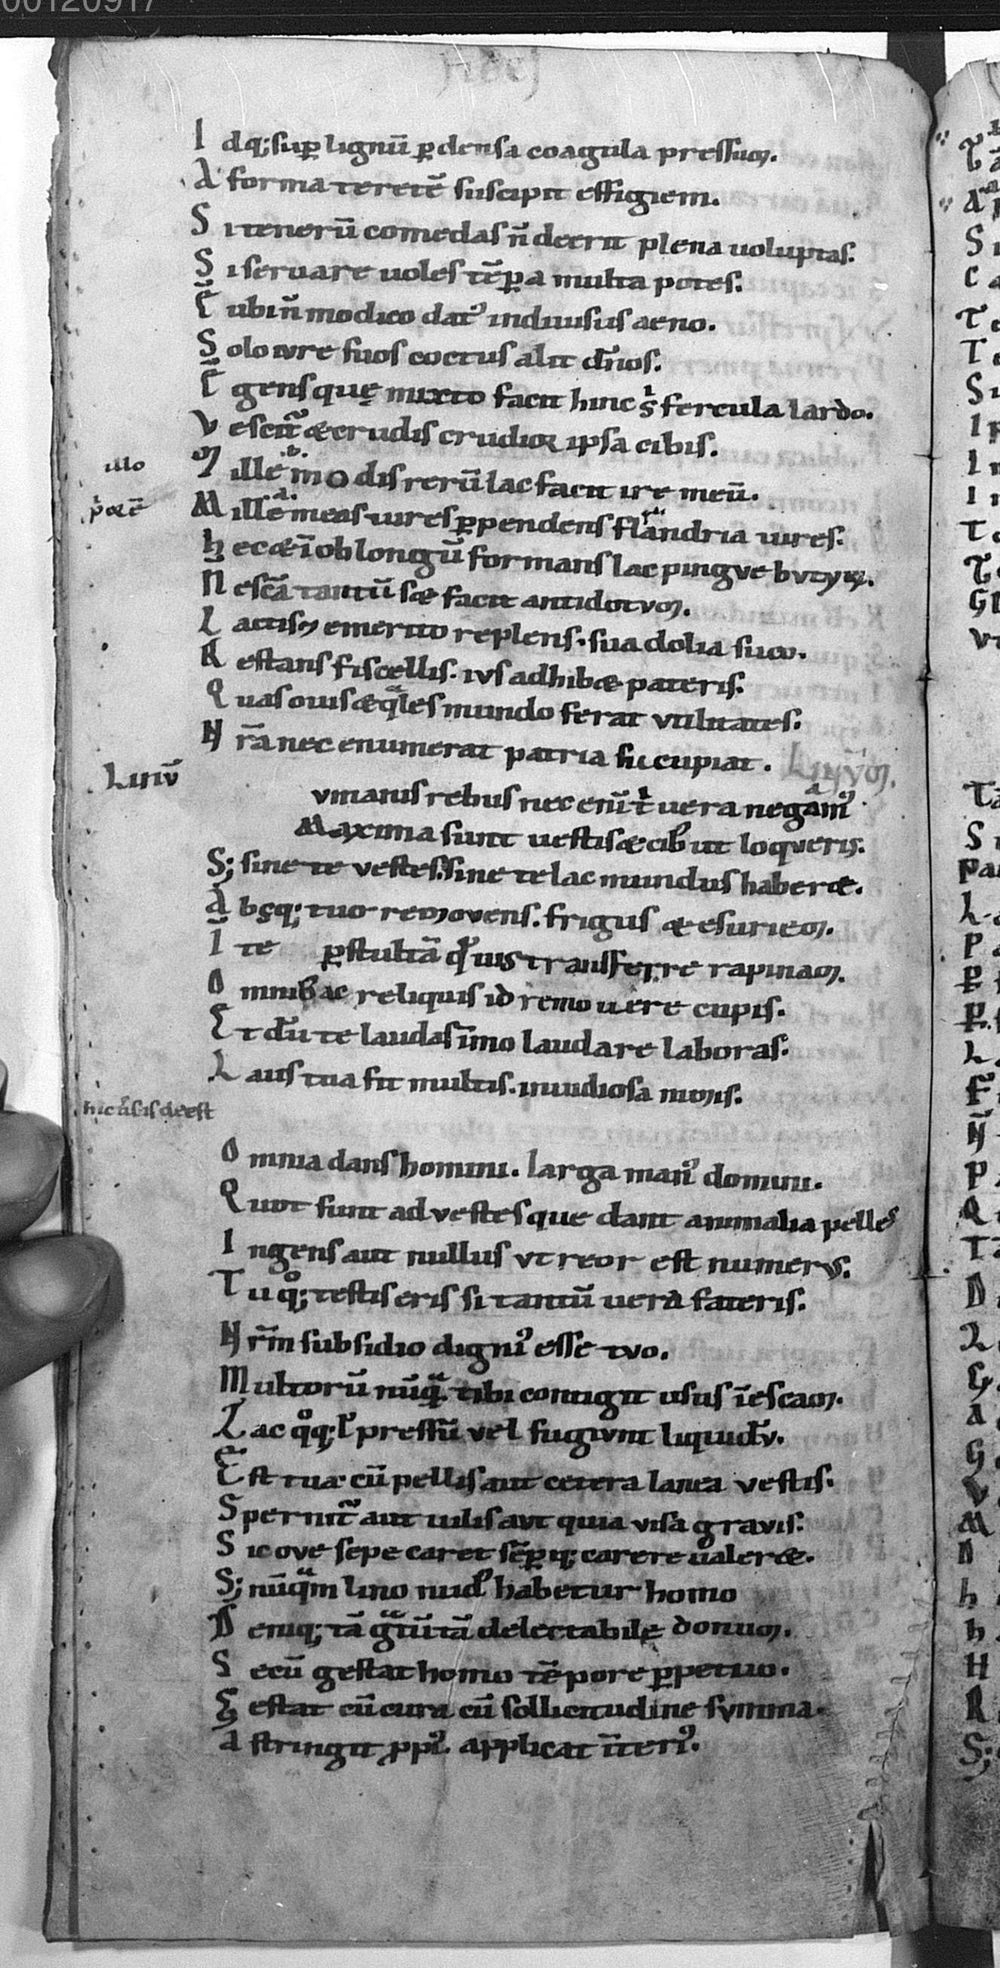 00120917
I dq; suꝑ lignū ꝑ densa coagula pressuꝫ.
A forma teretē suscipit effigiem.
S i tenerū comedas n̄ deerit plena uoluptas.
S i seruare uoles tēꝑa multa potes.
C ubin̄ modico datꝰ indiuisus aeno.
S olo iure suos coctus alit dn̄os.
E gens quę mixto facit hinc s' fercula lardo.
V escit̃ & crudis crudior ipsa cibis.
illo
M ille modis rerū lac facit ire meū.
p̄&ē
M ille meas uires ꝑpendens flandria uires.
h ec & ī oblongū formans lac pingue butyꝝ.
N escā tantū s& facit antidotuꝫ.
L actis emerito replens. sua dolia suco.
R estans fiscellis. ius adhib& pateris.
Q uas ouis & q̄les mundo ferat utilitates.
N r̄a nec enumerat patria si cupiat.
Linū
Linuꝫ.
vmanis rebus nec eni t' uera negamꝰ
Maxima sunt uestis & cibꝰ ut loqueris.
S; sine te vestes. sine te lac mundus haber&.
A bsq; tuo remouens. frigus & esurieꝫ.
I te ꝑ stultā qͥuis transferre rapinaꝫ.
O mnibꝰ ac reliquis id remouere cupis.
E t dū te laudas īmo laudare laboras.
L aus tua fit multis. inuidiosa nimis.
hic ūsis deest
O mnia dans homini. larga manꝰ domini.
Q uot sunt ad vestes que dant animalia pelles
I ngens aut nullus ut reor est numerus.
T u qͦ; testis eris si tantū uera fateris.
N r̄m subsidio dignꝰ esse tuo.
M ultorū nūqͣ. tibi contigit usus ī escaꝫ.
L ac qͦq; ł pressū vel fugiunt liquidū.
E st tua cū pellis aut cetera lanea vestis.
S pernit̃ aut uilis aut quia visa gravis.
S ic ove sepe caret sēꝑq; carere ualer&.
S; nūqͣm lino nudꝰ habetur homo
D eniq; tā gͣtū tā delectabile donuꝫ.
S ecū gestat homo tēpore ꝑpetuo.
G estat cū cura cū sollicitudine summa.
A stringit ꝓpꝰ. applicat īteriꝰ.